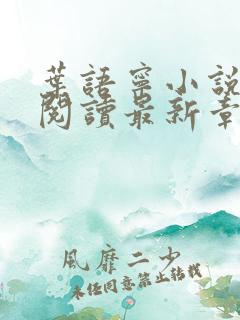 葉語寧小說
閱讀最新章
風靡二少
未經同意禁止轉載